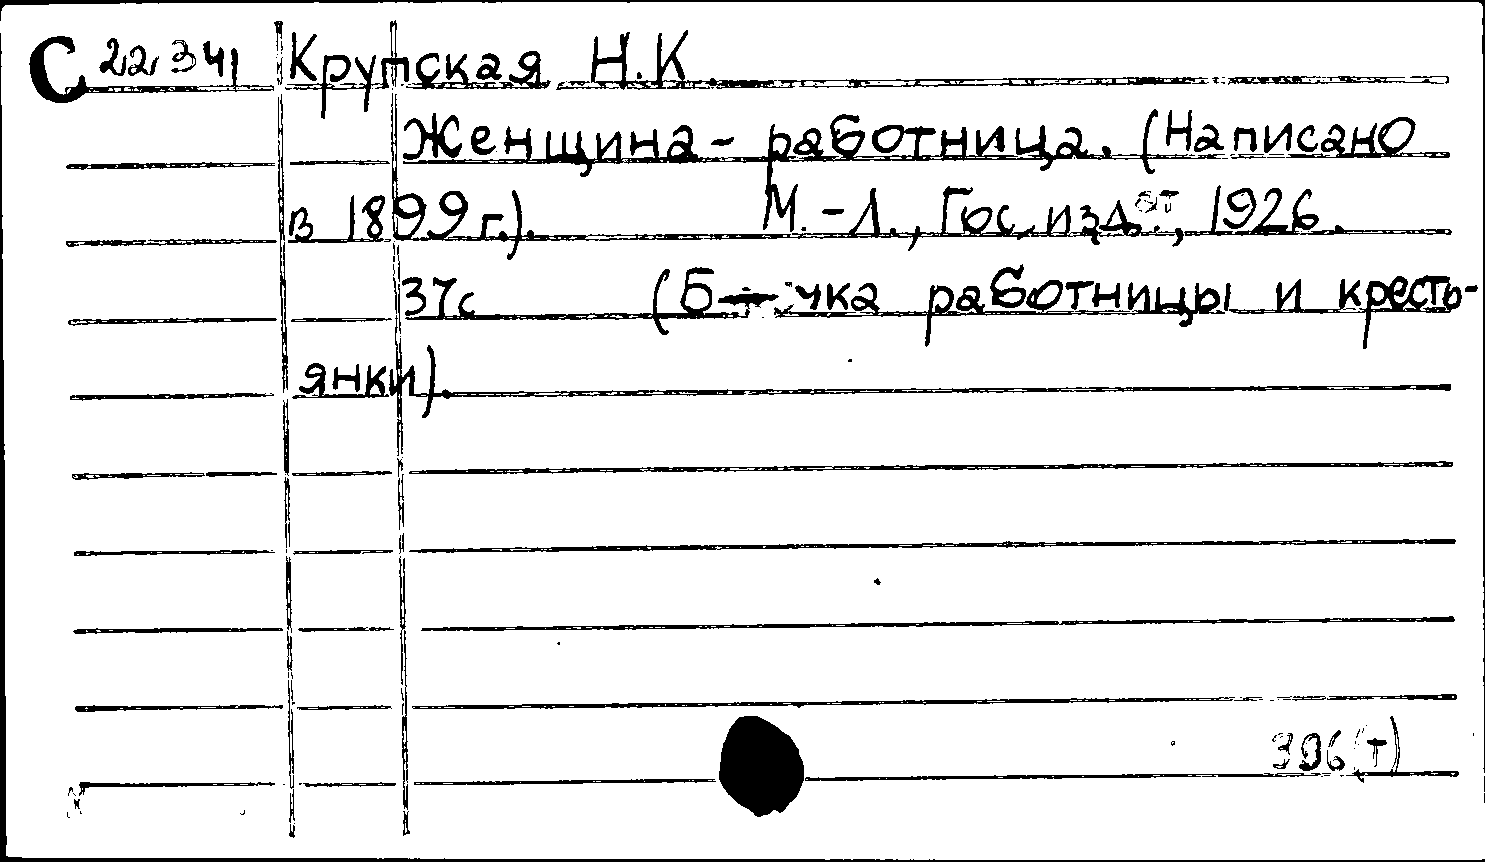 С 22.341 Крупская Н.К.
Женщина - работница. (Написано
в 1899 г.). М.-Л., Гос. изд.ат, 1926.
37с (Б-чка работницы и кресть-
янки).
396(т)